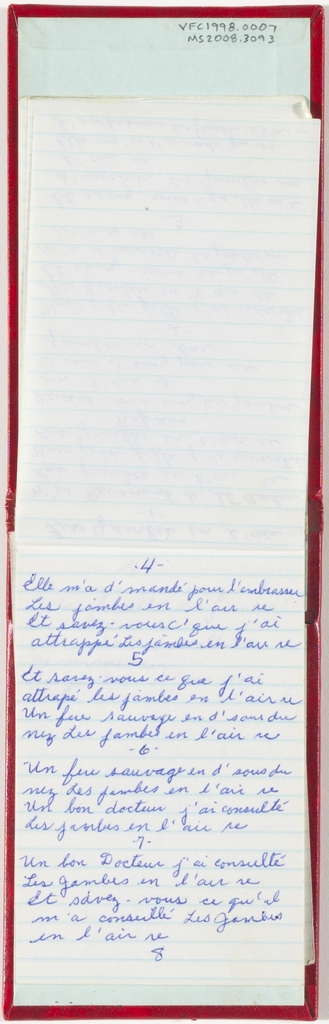 VFC1998.0007
MS2008.3093
-4-
Elle m'a d'mandé pour l'embrasser
Les jambes en l'air re
Et savez-vous c'que j'ai
attrappé Les jambes en l'air re
5
Et savez-vous ce que j'ai
attrapé les jambes en l'air re
Un feu sauvage en d'sous du
nez Les jambes en l'air re
-6-
Un feu sauvage en d'sous du
nez Les jambes en l'air re
Un bon docteur j'ai consulté
Les jambes en l'air re
-7-
Un bon Docteur j'ai consulté
Les gambes en l'air re
Et savez-vous ce qu'il
m'a conseillé Les Jambes
en l'air re
8